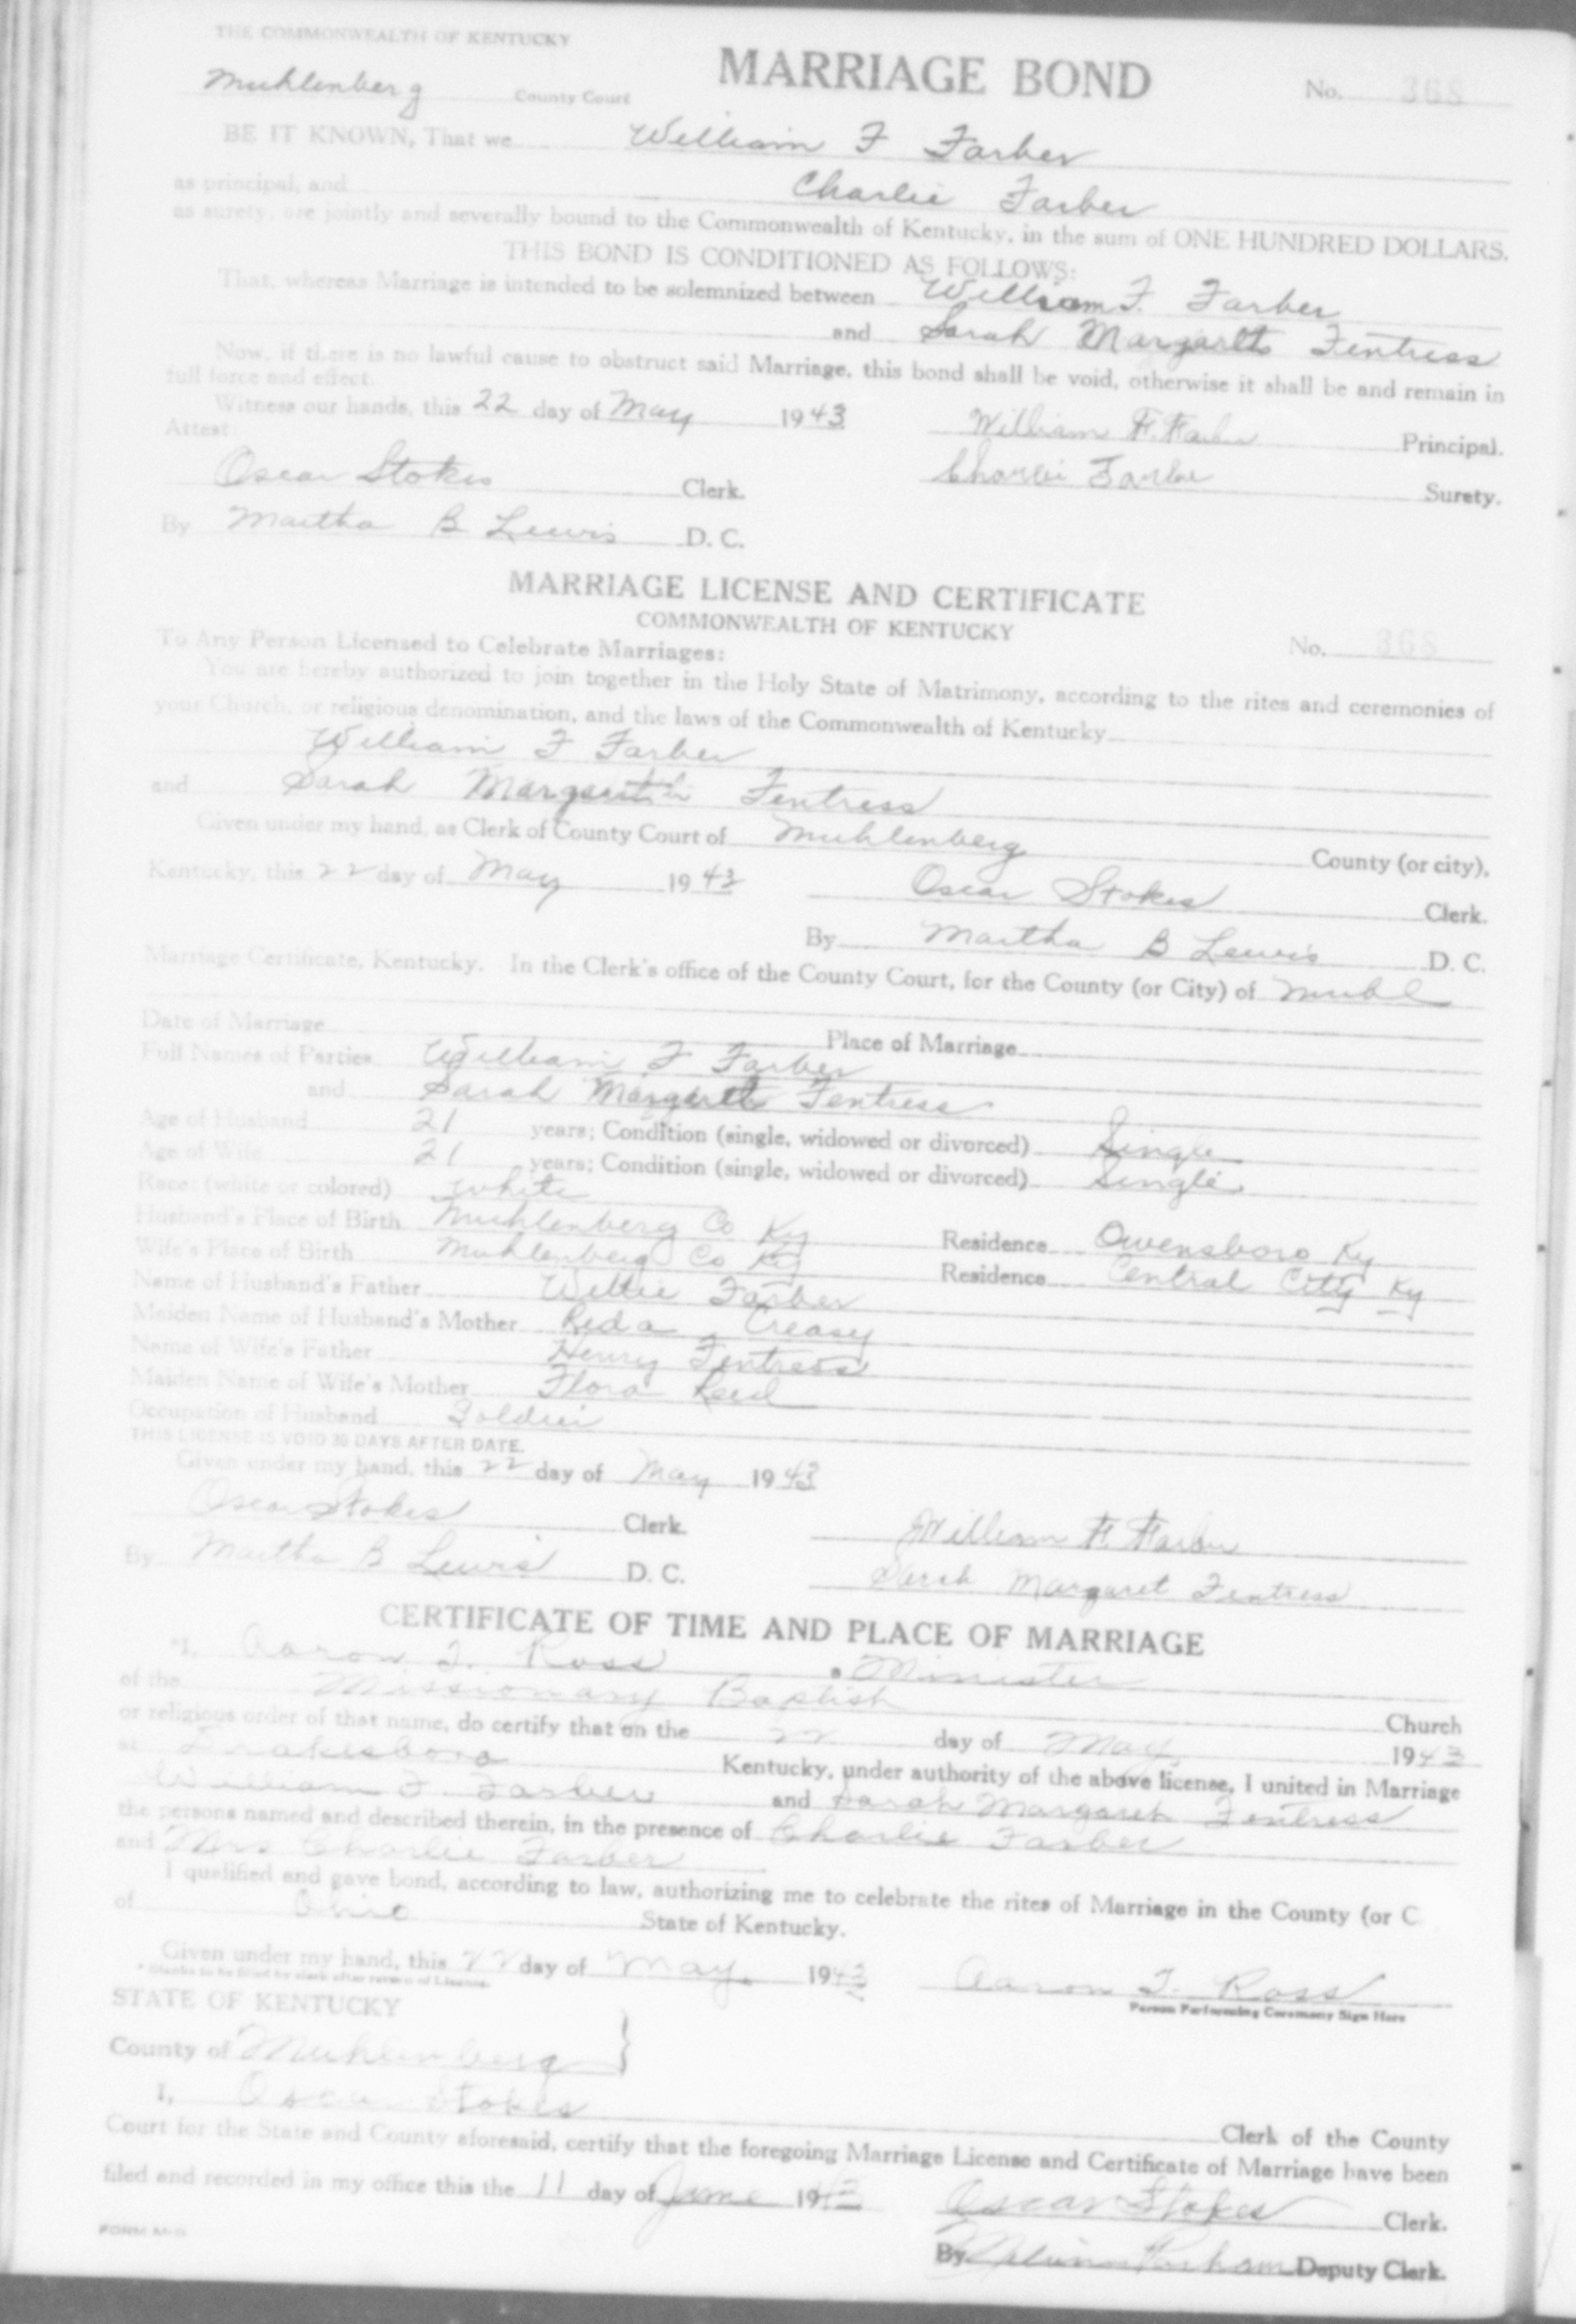 THE COMMONWEALTH OF KENTUCKY
MARRIAGE BOND
Muhlenberg County Court No. 368
BE IT KNOWN, That we William F Farber
as principal, and Charlie Farber
as surety, are jointly and severally bound to the Commonwealth of Kentucky, in the sum of ONE HUNDRED DOLLARS.
THIS BOND IS CONDITIONED AS FOLLOWS:
That, whereas Marriage is intended to be solemnized between William F. Farber
and Sarah Margaret Fentress
Now, if there is no lawful cause to obstruct said Marriage, this bond shall be void, otherwise it shall be and remain in
full force and effect.
Witness our hands, this 22 day of May 1943 William F. Farber Principal.
Attest:
Oscar Stokes Clerk. Charlie Farber Surety.
By Martha B Lewis D. C.
MARRIAGE LICENSE AND CERTIFICATE
COMMONWEALTH OF KENTUCKY
To Any Person Licensed to Celebrate Marriages: No. 368
You are hereby authorized to join together in the Holy State of Matrimony, according to the rites and ceremonies of
your Church, or religious denomination, and the laws of the Commonwealth of Kentucky
William F Farber
and Sarah Fentress
Given under my hand, as Clerk of County Court of Muhlenberg County (or city),
Kentucky, this 22 day of May 1943 Oscar Stokes Clerk.
By Martha B Lewis D. C.
Marriage Certificate, Kentucky. In the Clerk's office of the County Court, for the County (or City) of Muhl
Date of Marriage Place of Marriage
Full Names of Parties William F Farber
and Sarah Margaret Fentress
Age of Husband 21 years; Condition (single, widowed or divorced) Single
Age of Wife 21 years; Condition (single, widowed or divorced) Single
Race: (white or colored) white
Husband's Place of Birth Muhlenberg Co Ky Residence Owensboro Ky
Wife's Place of Birth Muhlenberg Co Ky Residence Central City Ky
Name of Husband's Father Willie Farber
Maiden Name of Husband's Mother Reda Creasy
Name of Wife's Father Henry Fentress
Maiden Name of Wife's Mother Flora Reid
Occupation of Husband Soldier
THIS LICENSE IS VOID 30 DAYS AFTER DATE.
Given under my hand, this 22 day of May 1943
Oscar Stokes Clerk. William F. Farber
By Martha B Lewis D. C. Sarah Margaret Fentress
CERTIFICATE OF TIME AND PLACE OF MARRIAGE
*I, Aaron T. Ross a Minister
of the Missionary Baptist Church
or religious order of that name, do certify that on the 22 day of May, 1943
at Drakesboro Kentucky, under authority of the above license, I united in Marriage
William F. Farber and Sarah Margaret Fentress
the persons named and described therein, in the presence of Charlie Farber
and Mrs Charlie Farber
I qualified and gave bond, according to law, authorizing me to celebrate the rites of Marriage in the County (or C
of Ohio State of Kentucky.
Given under my hand, this 22 day of May. 1943 Aaron T. Ross
* Blanks to be filled by clerk after return of License. Person Performing Ceremony Sign Here
STATE OF KENTUCKY
County of Muhlenberg }
I, Oscar Stokes Clerk of the County
Court for the State and County aforesaid, certify that the foregoing Marriage License and Certificate of Marriage have been
filed and recorded in my office this the 11 day of June 1943 Oscar Stokes Clerk.
FORM
By Parham Deputy Clerk.